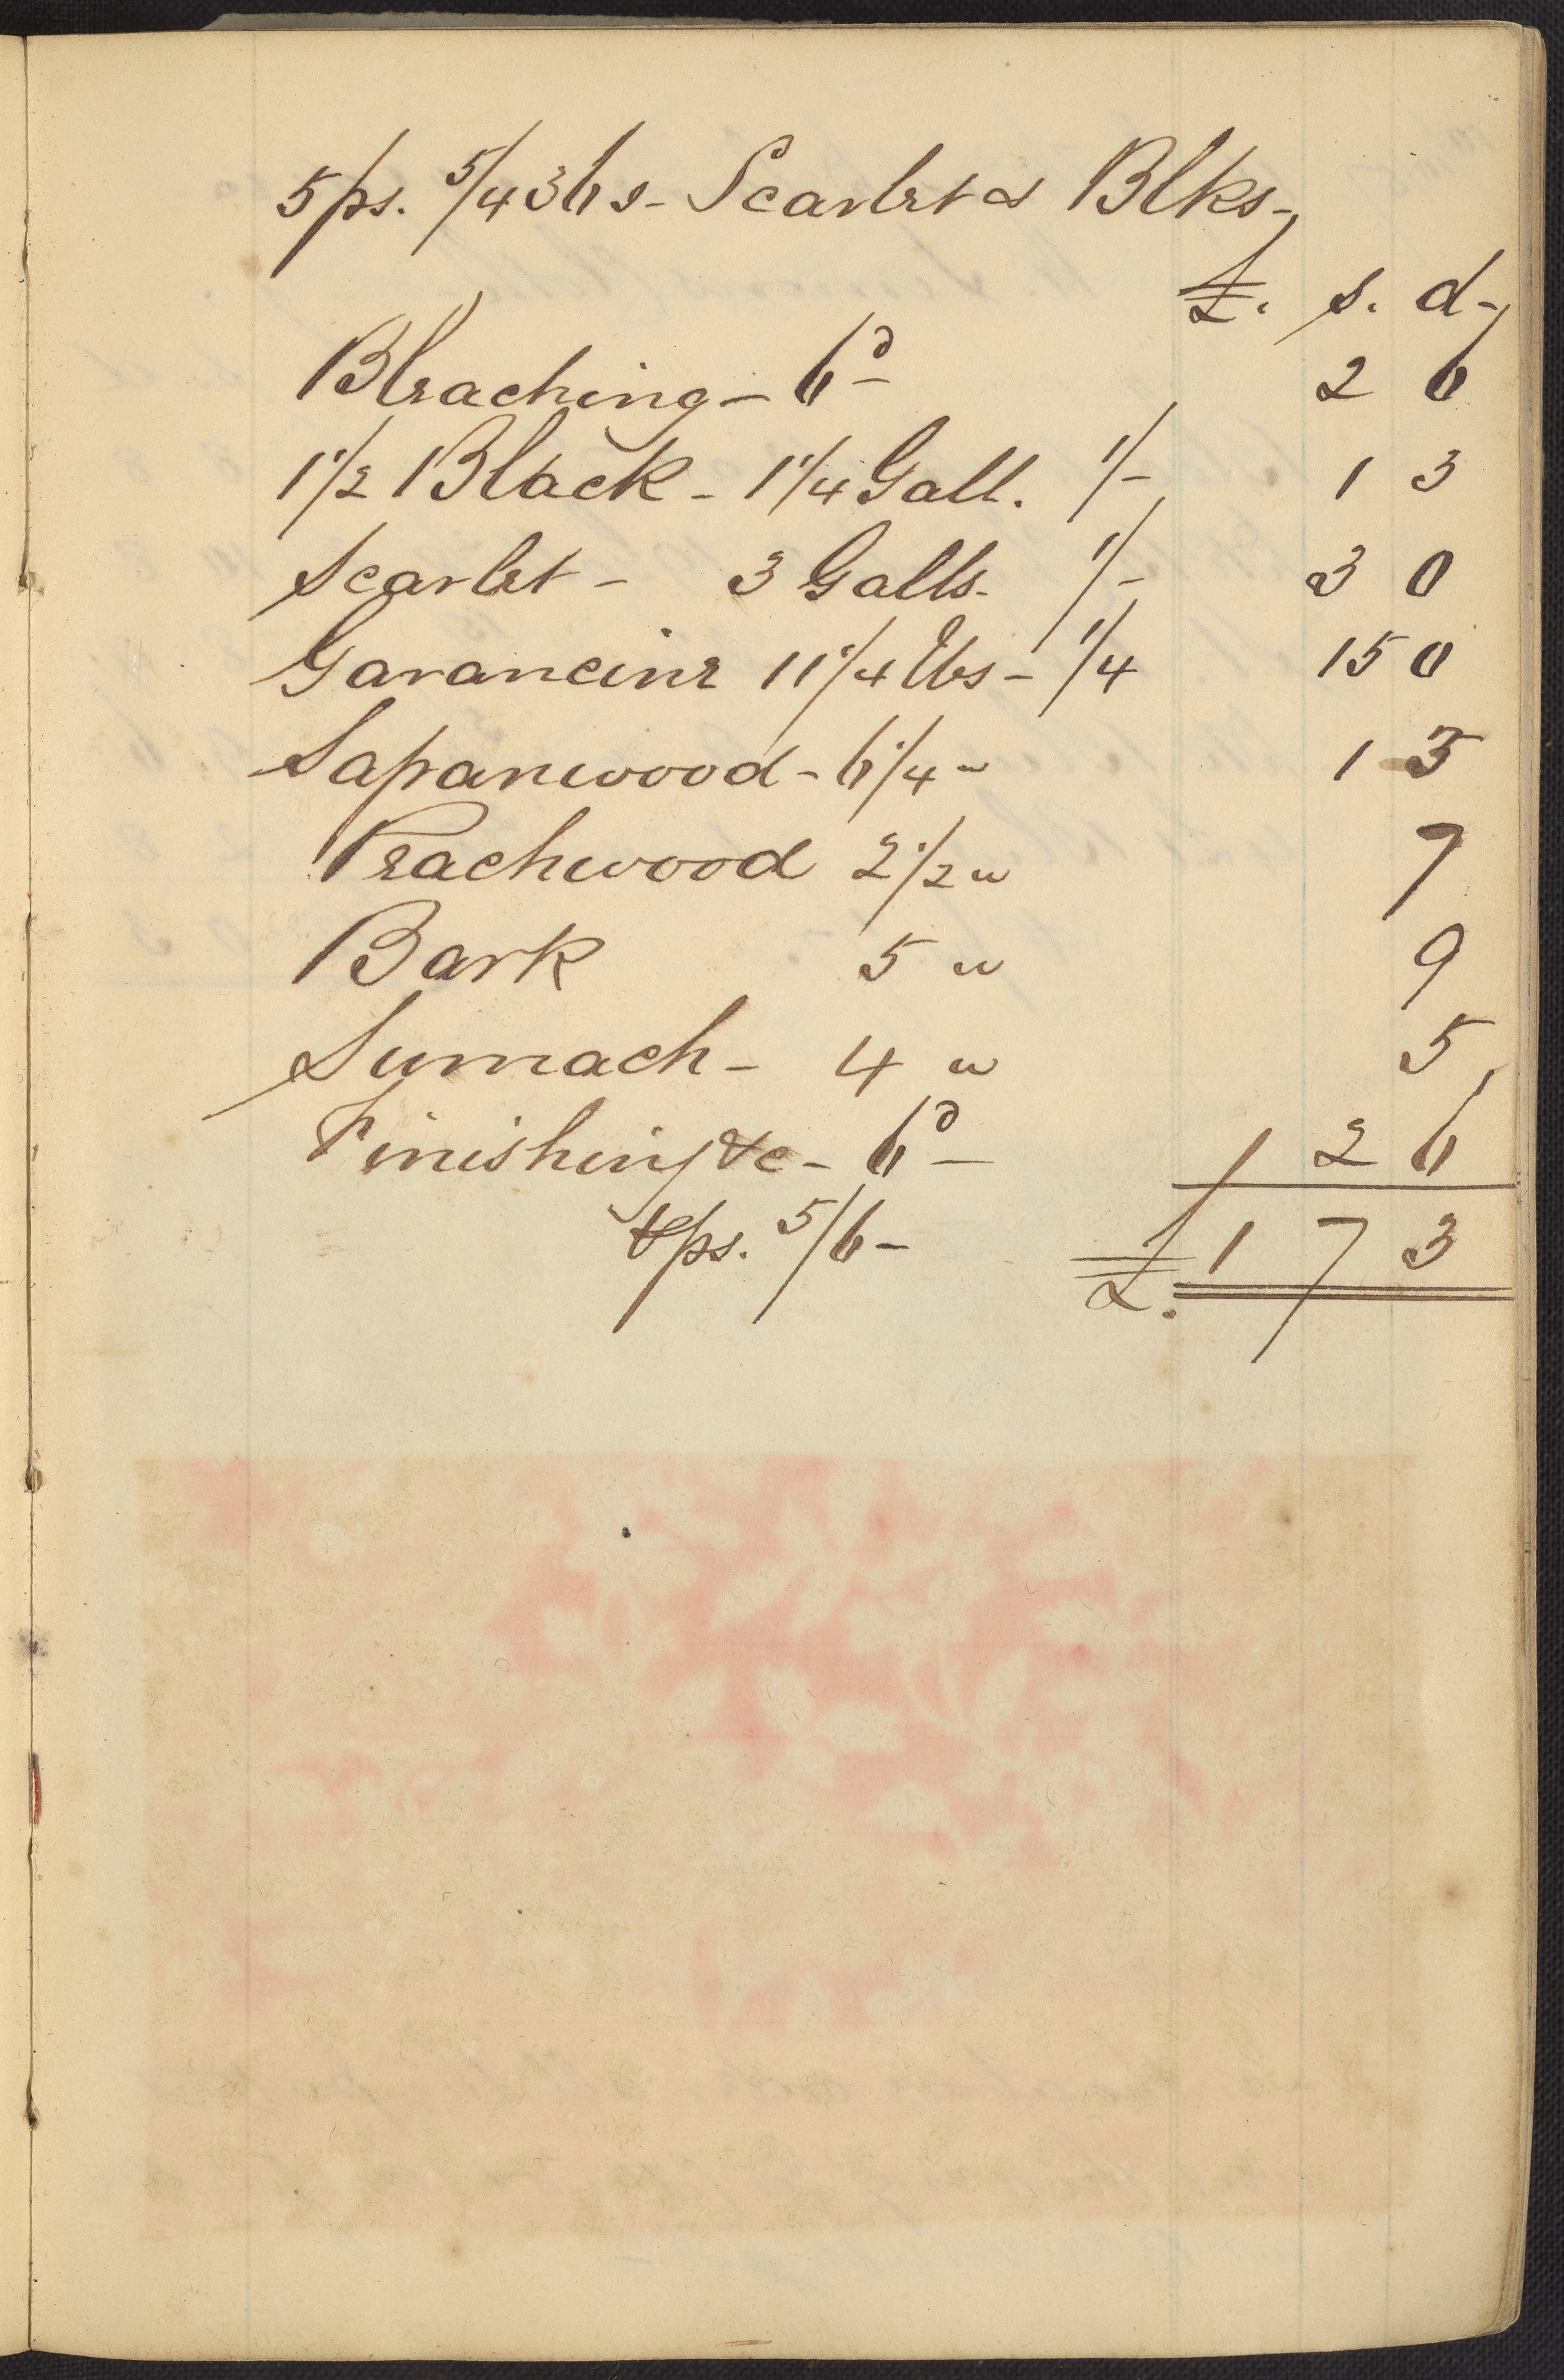 5 ps. 5/4 36s - Scarlet & Blks -
£. s. d -
Bleaching - 6d 2 6
1 1/2 Black - 1 1/4 Gall. 1/- 1 3
Scarlet - 3 Galls. 1/- 3 0
Garancine 11 1/4 lbs - 1/4 15 0
Sapanwood - 6 1/4 " 1 3
Peachwood 2 1/2 " 7
Bark 5 " 9
Sumach - 4 " 5
Finishing &c - 6d - 2 6
ps. 5/6 - £. 1 7 3